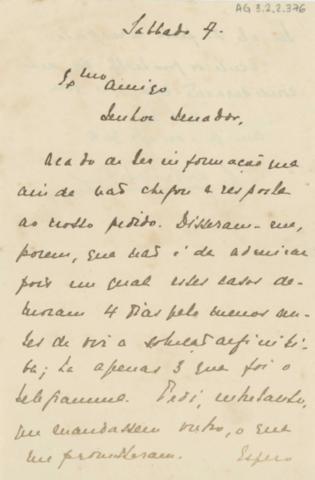 AG 3.2.2.376
Sabbado 7.
Exmo Amigo
Senhor Senador,
Acabo de ter informação que
ainda não chegou a resposta
ao nosso pedido. Disseram-me,
porem, que não é de admirar
pois em geral estes casos de-
moram 4 dias pelo menos an-
tes de vir a solução definiti-
va; ha apenas 3 que foi o
telegramma. Pedi, entretanto,
que mandassem outro, o que
me prometteram. Espero